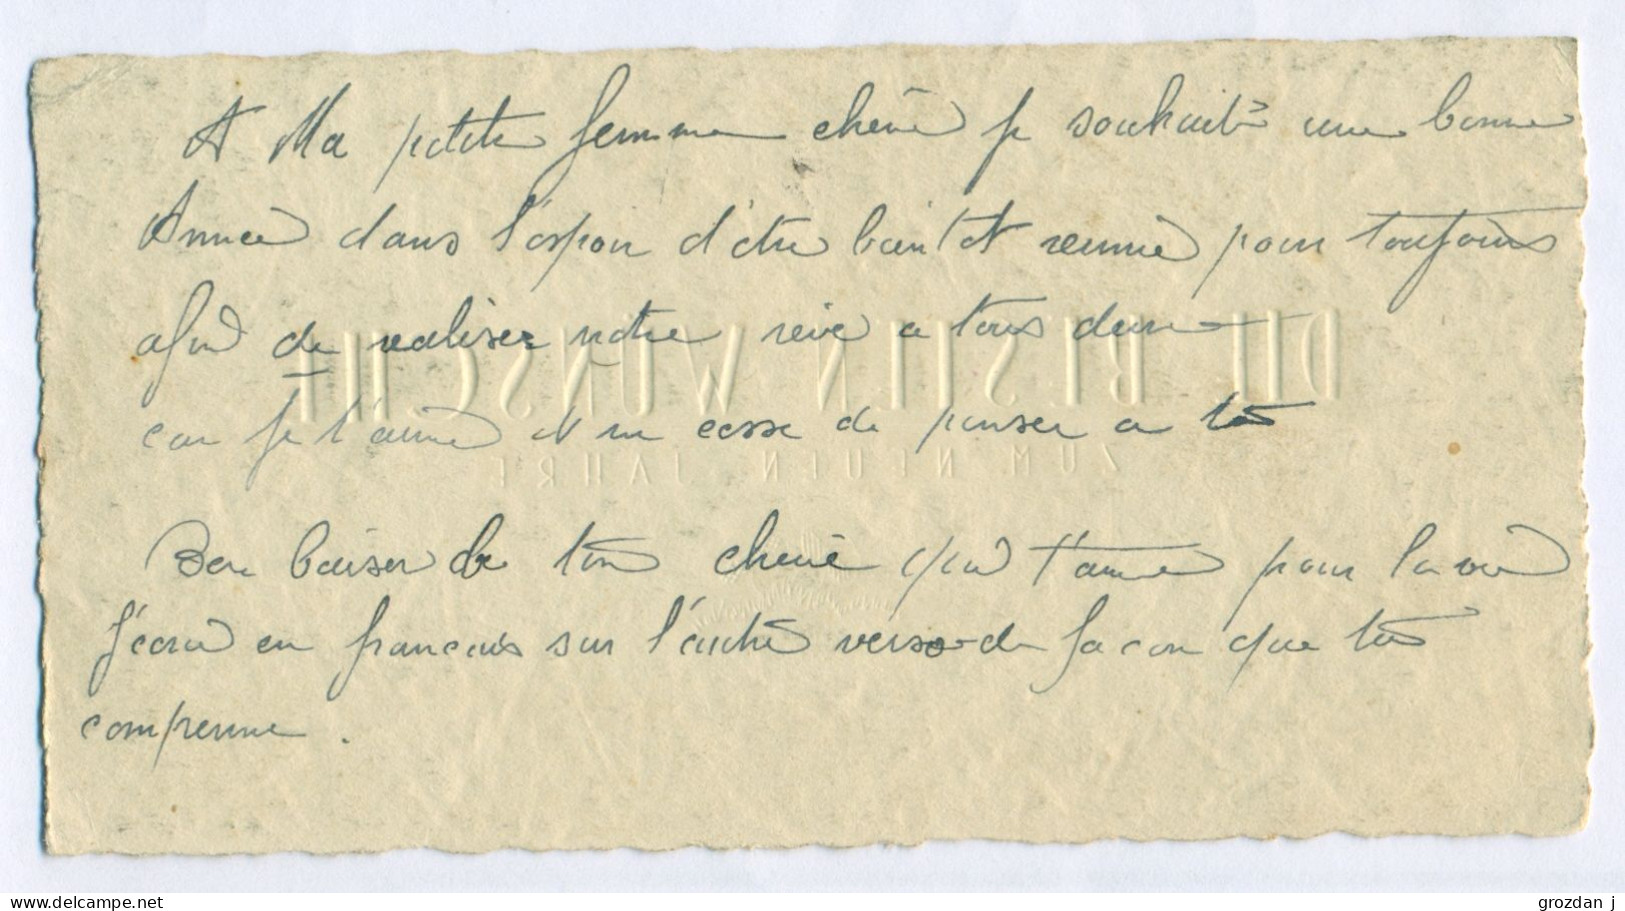 A Ma petite femme cherie je souhaite une bonne
Année dans l'espoir d'être bientot reunie pour toujours
afin de realiser notre reve a tous deux
car je t'aime et ne cesse de penser a toi
DIE BESTEN WÜNSCHE
ZUM NEUEN JAHRE
Bon baiser de ton cherie qui t'aime pour la vie
J'écrie en francais sur l'autre verso de facon que toi
comprenne .
grozdan j